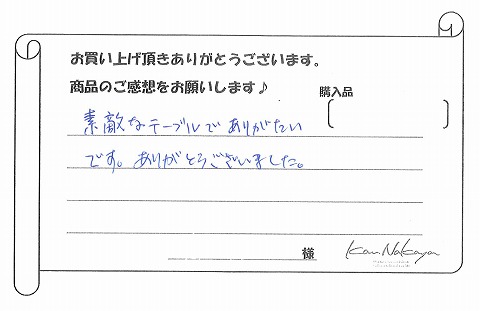 お買い上げ頂きありがとうございます。
商品のご感想をお願いします♪
購入品
素敵なテーブルでありがたい
です。ありがとうございました。
様
Kan Nakaya